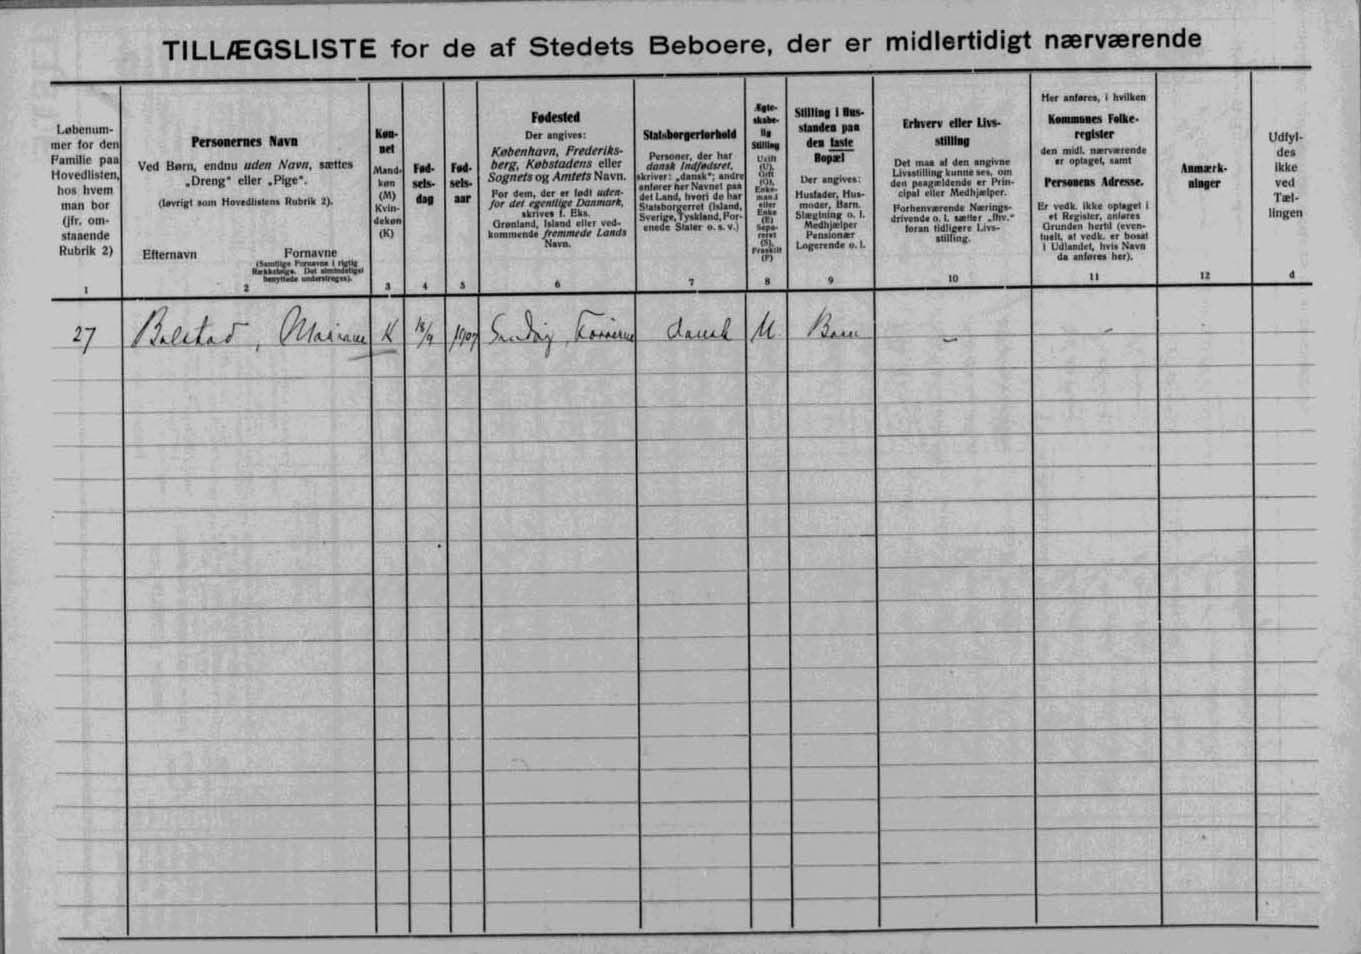 TILLÆGSLISTE for de af Stedets Beboere, der er midlertidigt nærværende
Løbenum-
mer for den
Familie paa
Hovedlisten,
hos hvem
man bor
(jfr. om-
staaende
Rubrik 2)
1
Personernes Navn
Ved Børn, endnu uden Navn, sættes
„Dreng“ eller „Pige“.
(Iøvrigt som Hovedlistens Rubrik 2).
Efternavn Fornavne
(Samtlige Fornavne i rigtig
Rækkefølge. Det almindeligst
benyttede understreges).
2
Køn-
net
Mand-
køn
(M)
Kvin-
dekøn
(K)
3
Fød-
sels-
dag
4
Fød-
sels-
aar
5
Fødested
Der angives:
København, Frederiks-
berg, Købstadens eller
Sognets og Amtets Navn.
For dem, der er født uden-
for det egentlige Danmark,
skrives f. Eks.
Grønland, Island eller ved-
kommende fremmede Lands
Navn.
6
Statsborgerforhold
Personer, der har
dansk Indfødsret,
skriver: „dansk“; andre
anfører her Navnet paa
det Land, hvori de har
Statsborgerret (Island,
Sverige, Tyskland, For-
enede Stater o. s. v.)
7
Ægte-
skabe-
lig
Stilling
Ugift
(U),
Gift
(G),
Enke-
mand
eller
Enke
(E)
Sepa-
reret
(S),
Fraskilt
(F)
8
Stilling i Hus-
standen paa
den faste
Bopæl
Der angives:
Husfader, Hus-
moder, Barn,
Slægtning o. l.
Medhjælper
Pensionær
Logerende o. l.
9
Erhverv eller Livs-
stilling
Det maa af den angivne
Livsstilling kunne ses, om
den paagældende er Prin-
cipal eller Medhjælper.
Forhenværende Nærings-
drivende o. l. sætter „fhv.“
foran tidligere Livs-
stilling.
10
Her anføres, i hvilken
Kommunes Folke-
register
den midl. nærværende
er optaget, samt
Personens Adresse.
Er vedk. ikke optaget i
et Register, anføres
Grunden hertil (even-
tuelt, at vedk. er bosat
i Udlandet, hvis Navn
da anføres her).
11
Anmærk-
ninger
12
Udfyl-
des
ikke
ved
Tæl-
lingen
d
27 Bolstad, Mariane K 18/9 1907 dansk U Barn – –